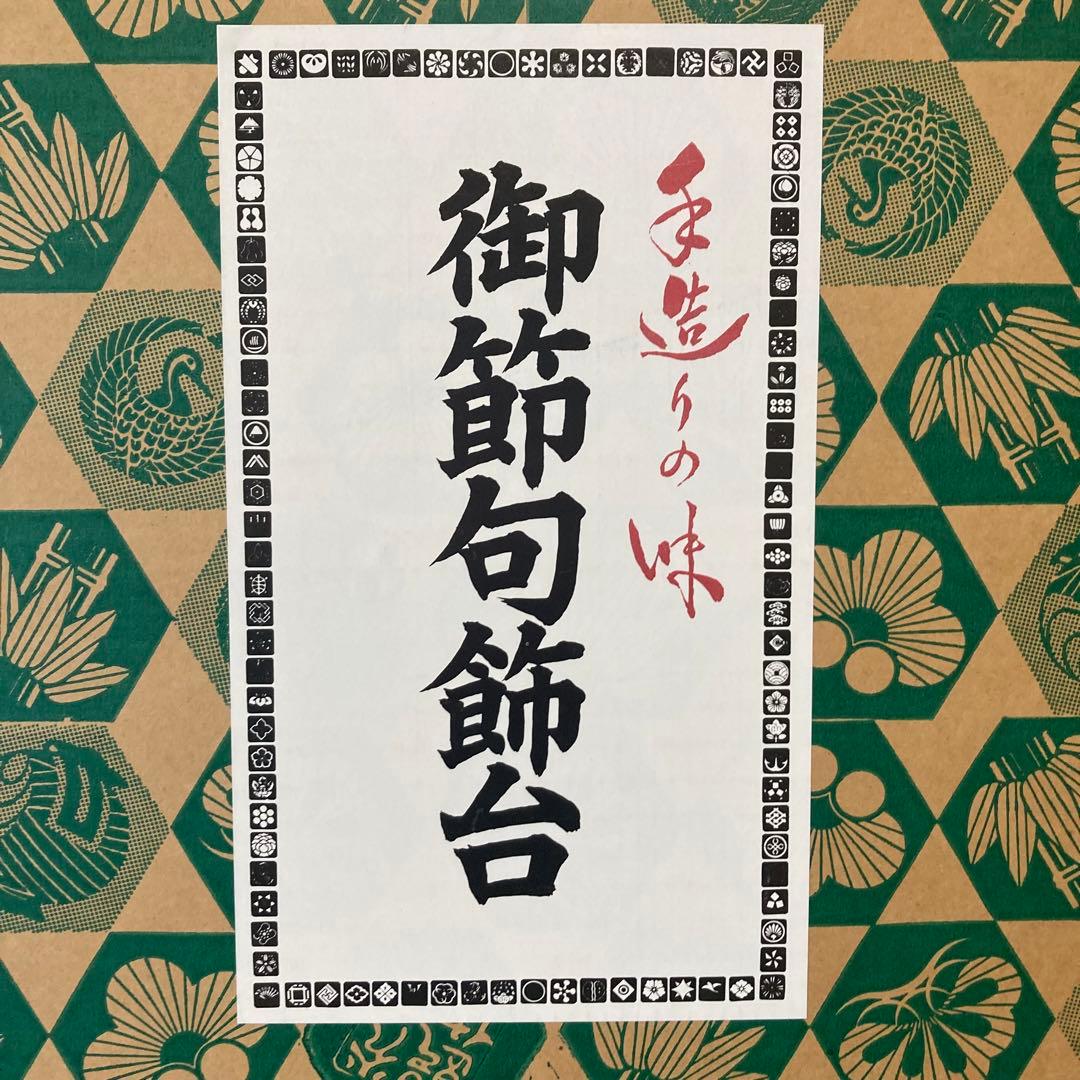 手造りの味
御節句飾台